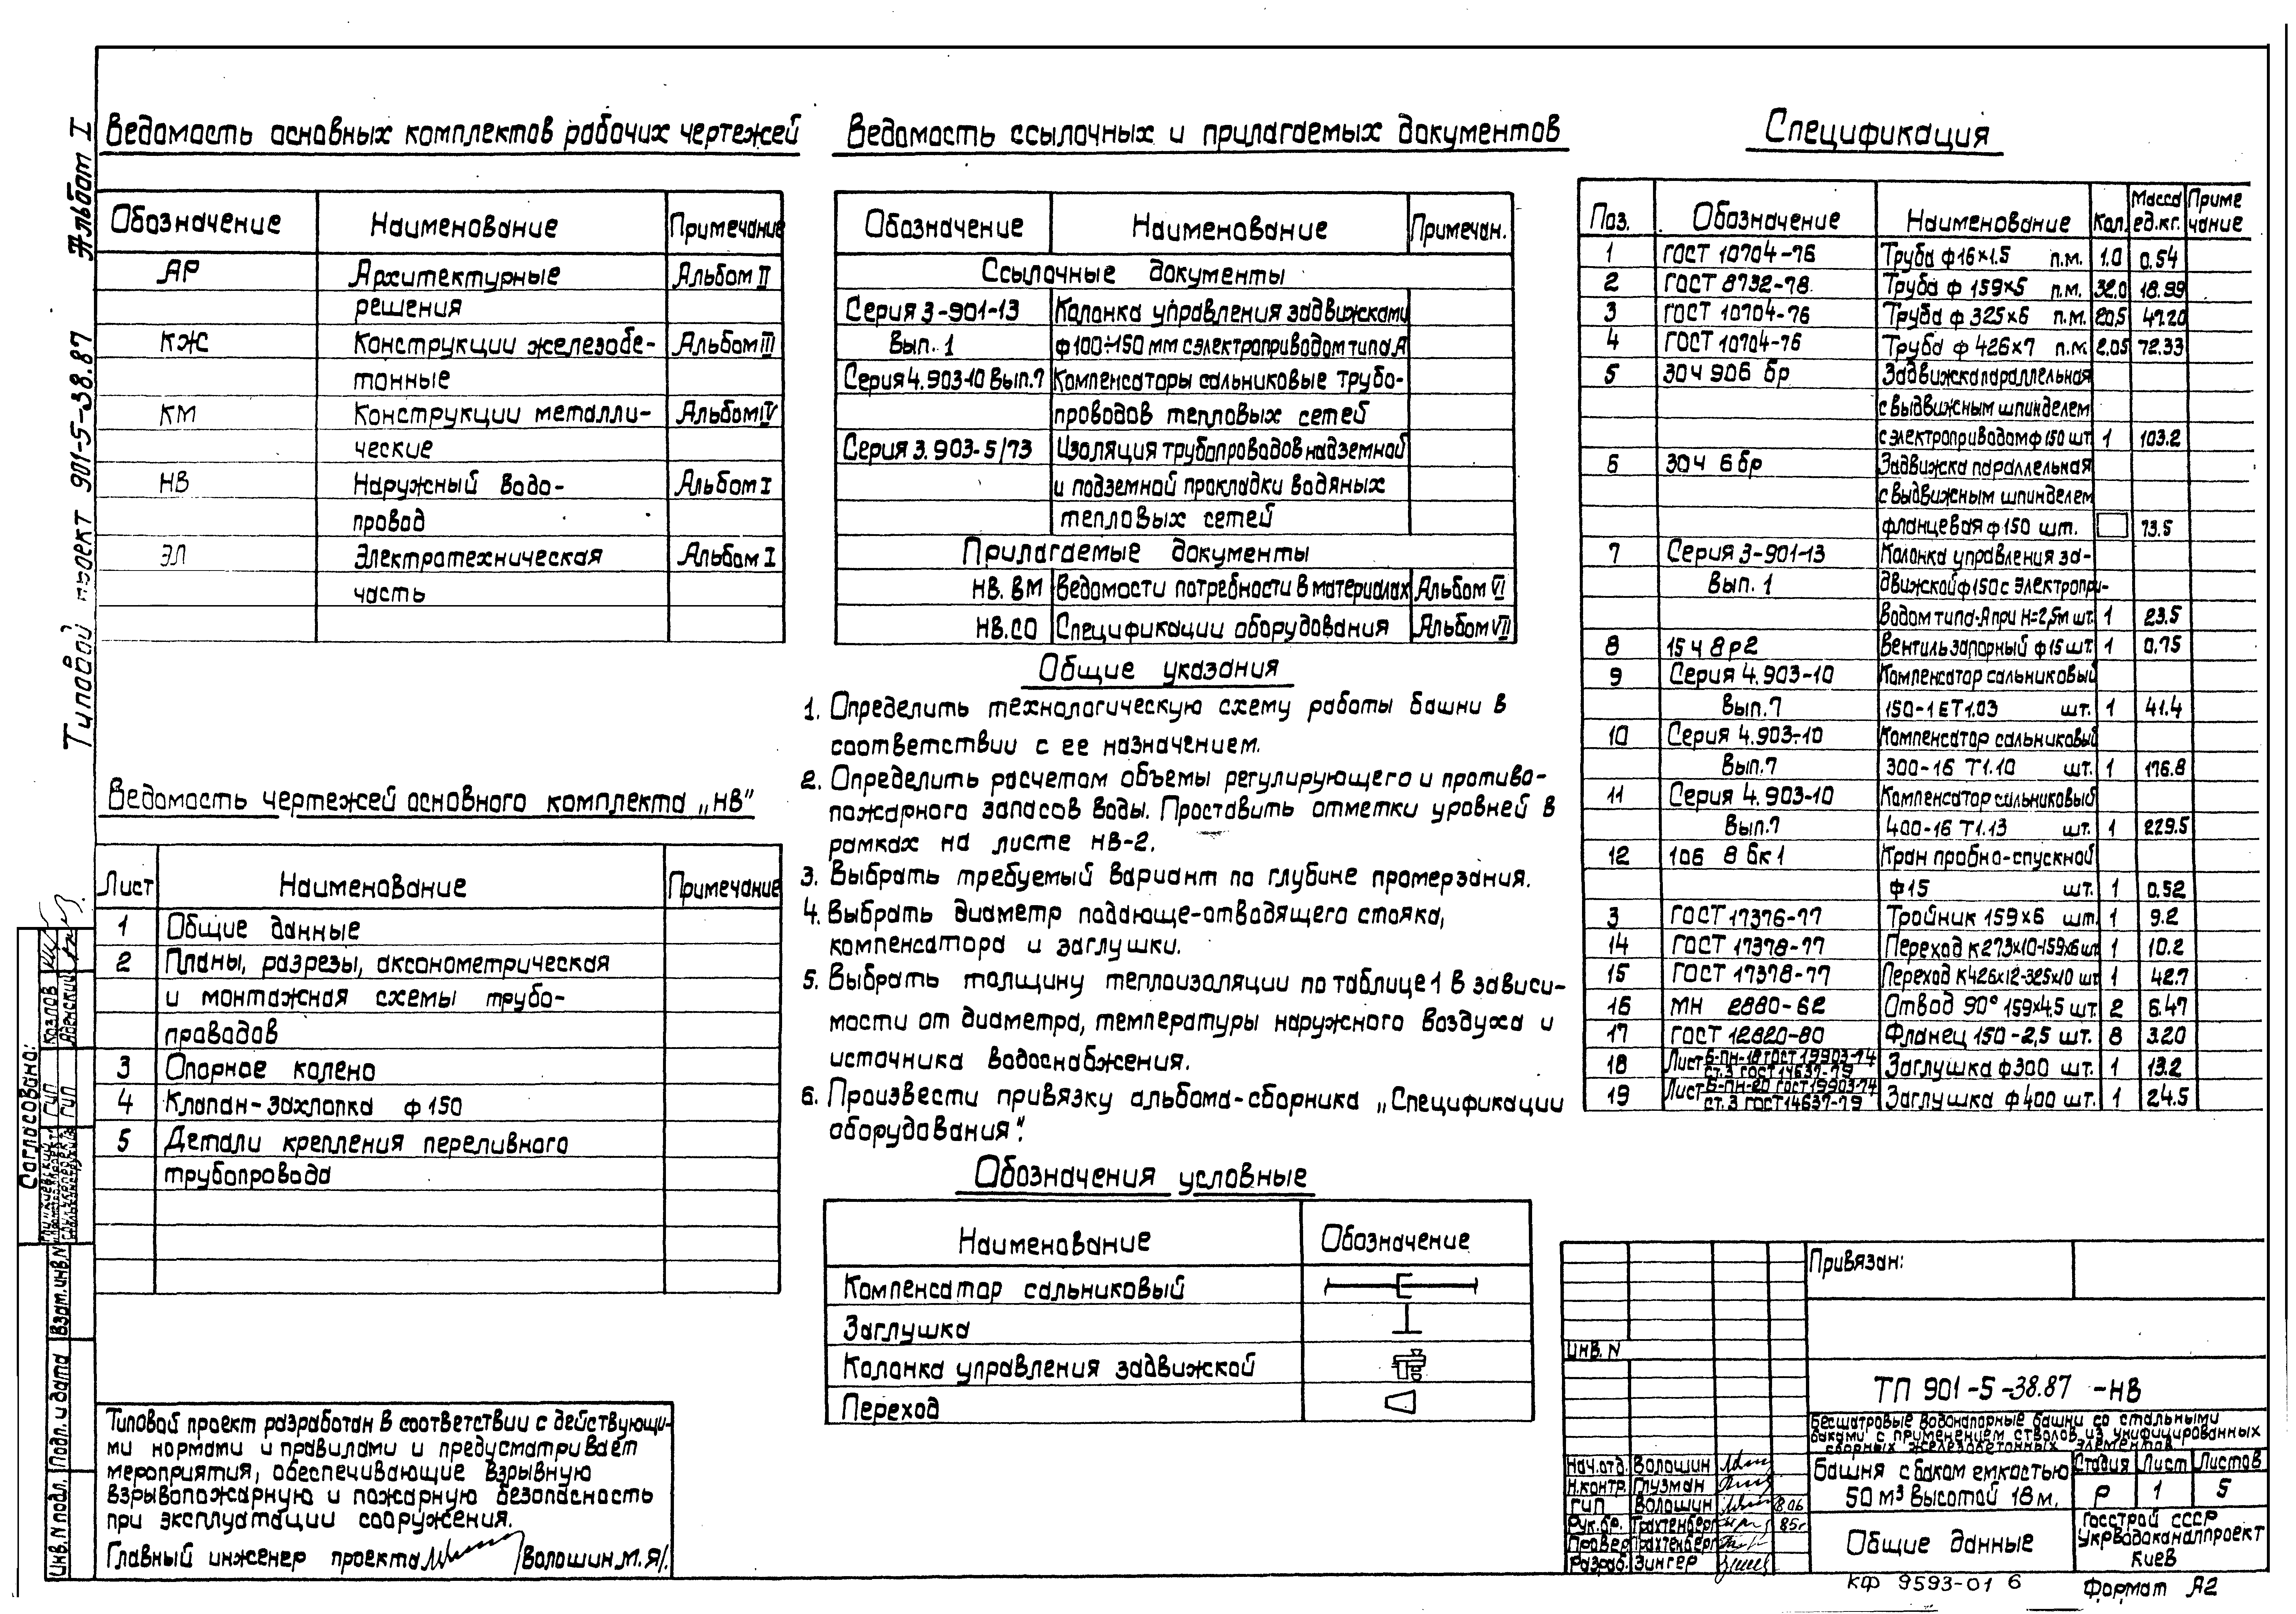 Альбом I
Типовой проект 901-5-38.87
Ведомость основных комплектов рабочих чертежей
Обозначение Наименование Примечание
АР Архитектурные Альбом II
решения
КЖ Конструкции железобе- Альбом III
тонные
КМ Конструкции металли- Альбом IV
ческие
НВ Наружный водо- Альбом I
провод
ЭЛ Электротехническая Альбом I
часть
Ведомость чертежей основного комплекта „НВ"
Лист Наименование Примечание
1 Общие данные
2 Планы, разрезы, аксонометрическая
и монтажная схемы трубо-
проводов
3 Опорное колено
4 Клапан-захлопка ф 150
5 Детали крепления переливного
трубопровода
Типовой проект разработан в соответствии с действующи-
ми нормами и правилами и предусматривает
мероприятия, обеспечивающие взрывную
взрывопожарную и пожарную безопасность
при эксплуатации сооружения.
Главный инженер проекта /Волошин М.Я/.
Ведомость ссылочных и прилагаемых документов
Обозначение Наименование Примечан.
Ссылочные документы
Серия 3-901-13 Колонка управления задвижками
Вып. 1 ф100÷150 мм с электроприводом типа А
Серия 4.903-10 Вып.7 Компенсаторы сальниковые трубо-
проводов тепловых сетей
Серия 3.903-5/73 Изоляция трубопроводов надземной
и подземной прокладки водяных
тепловых сетей
Прилагаемые документы
НВ. ВМ Ведомости потребности в материалах Альбом VI
НВ.СО Спецификации оборудования Альбом VII
Общие указания
1. Определить технологическую схему работы башни в
соответствии с ее назначением.
2. Определить расчетом объемы регулирующего и противо-
пожарного запасов воды. Проставить отметки уровней в
рамках на листе НВ-2.
3. Выбрать требуемый вариант по глубине промерзания.
4. Выбрать диаметр подающе-отводящего стояка,
компенсатора и заглушки.
5. Выбрать толщину теплоизоляции по таблице 1 в зависи-
мости от диаметра, температуры наружного воздуха и
источника водоснабжения.
6. Произвести привязку альбома-сборника „Спецификации
оборудования".
Обозначения условные
Наименование Обозначение
Компенсатор сальниковый
Заглушка
Колонка управления задвижкой
Переход
Спецификация
Поз. Обозначение Наименование Кол. Масса ед.кг. Приме чание
1 ГОСТ 10704-76 Труба ф16×1.5 п.м. 1.0 0.54
2 ГОСТ 8732-78 Труба ф 159×5 п.м. 32.0 18.99
3 ГОСТ 10704-76 Труба ф 325×6 п.м. 20.5 47.20
4 ГОСТ 10704-76 Труба ф 426×7 п.м. 2.05 72.33
5 30ч 906 бр Задвижка параллельная
с выдвижным шпинделем
с электроприводом ф 150 шт 1 103.2
6 30ч 6 бр Задвижка параллельная
с выдвижным шпинделем
фланцевая ф 150 шт. 73.5
7 Серия 3-901-13 Колонка управления за-
Вып. 1 движкой ф150 с электропри-
водом типа-А при Н=2,5м шт. 1 23.5
8 15ч 8р2 Вентиль запорный ф 15 шт. 1 0.75
9 Серия 4.903-10 Компенсатор сальниковый
Вып.7 150-16 Т1.03 шт. 1 41.4
10 Серия 4.903-10 Компенсатор сальниковый
Вып.7 300-16 Т1.10 шт. 1 176.8
11 Серия 4.903-10 Компенсатор сальниковый
Вып.7 400-16 Т1.13 шт. 1 229.5
12 10б 8 бк1 Кран пробно-спускной
ф15 шт. 1 0.52
3 ГОСТ 17376-77 Тройник 159×6 шт. 1 9.2
14 ГОСТ 17378-77 Переход К273×10-159×6 шт 1 10.2
15 ГОСТ 17378-77 Переход К426×12-325×10 шт 1 42.7
16 МН 2880-62 Отвод 90° 159×4.5 шт. 2 6.47
17 ГОСТ 12820-80 Фланец 150-2,5 шт. 8 3.20
18 Лист Б-ПН-18 ГОСТ 19903-74 ст.3 ГОСТ 14637-79 Заглушка ф300 шт. 1 13.2
19 Лист Б-ПН-20 ГОСТ 19903-74 ст.3 ГОСТ 14637-79 Заглушка ф400 шт. 1 24.5
Согласовано:
Козлов
ГИП
ГИП
Взам. инв. N
Подп. и дата
Инв. N подл.
Привязан:
Инв. N
ТП 901-5-38.87 -НВ
Бесшатровые водонапорные башни со стальными
баками с применением стволов из унифицированных
сборных железобетонных элементов
Нач.отд. Волошин
Н.контр. Глузман
ГИП Волошин
Рук.бр. Трахтенберг 85г
Провер Трахтенберг
Разраб. Зингер
Башня с баком емкостью
50 м³ высотой 18 м.
Стадия Лист Листов
Р 1 5
Общие данные
Госстрой СССР
Укрводоканалпроект
Киев
КФ 9593-01 6
Формат А2